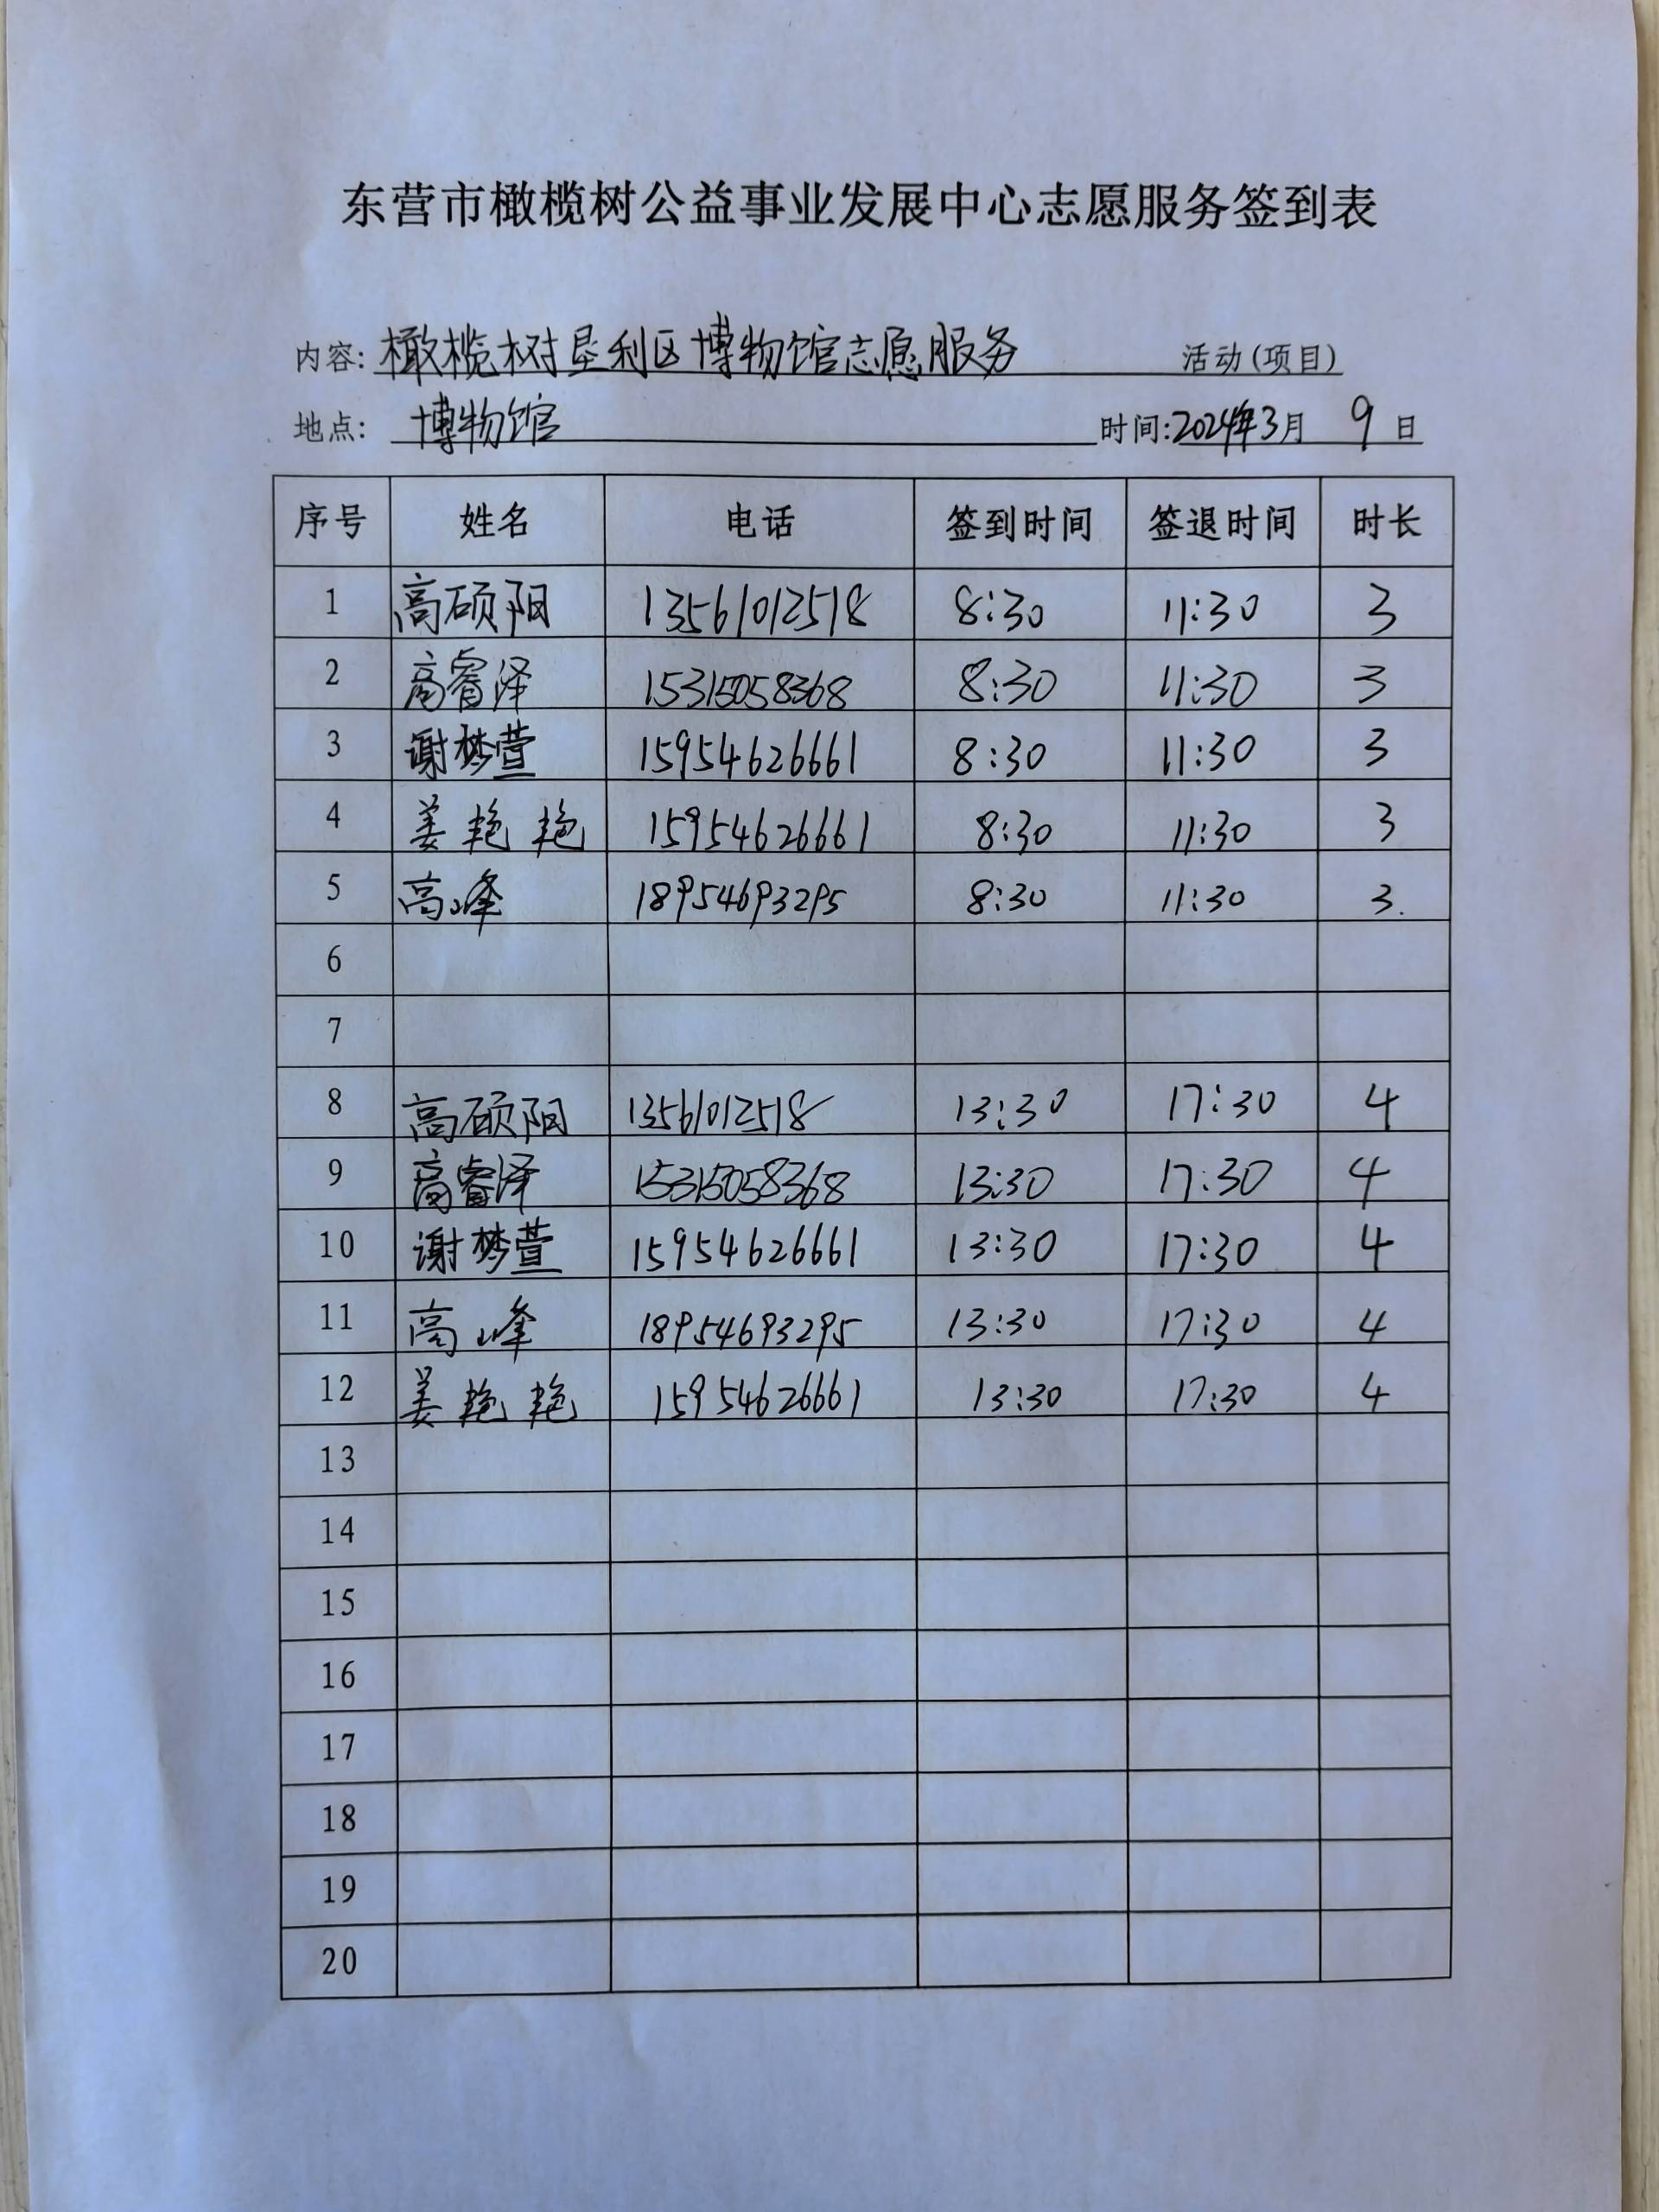 东营市橄榄树公益事业发展中心志愿服务签到表
内容: 橄榄树垦利区博物馆志愿服务 活动(项目)
地点: 博物馆 时间:2024年3月 9 日
序号 姓名 电话 签到时间 签退时间 时长
1 高硕阳 13561012518 8:30 11:30 3
2 高睿泽 15315058368 8:30 11:30 3
3 谢梦萱 15954626661 8:30 11:30 3
4 姜艳艳 15954626661 8:30 11:30 3
5 高峰 18954693295 8:30 11:30 3.
6
7
8 高硕阳 13561012518 13:30 17:30 4
9 高睿泽 15315058368 13:30 17:30 4
10 谢梦萱 15954626661 13:30 17:30 4
11 高峰 18954693295 13:30 17:30 4
12 姜艳艳 15954626661 13:30 17:30 4
13
14
15
16
17
18
19
20